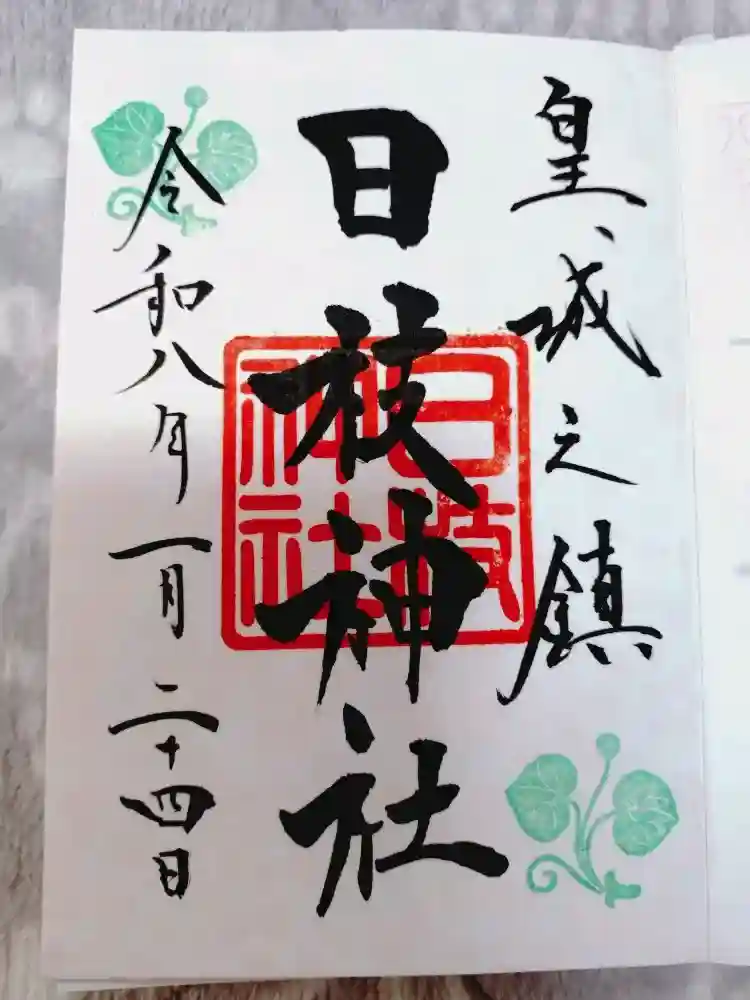 皇城之鎮
日枝神社
日枝
神社
令和八年一月二十四日